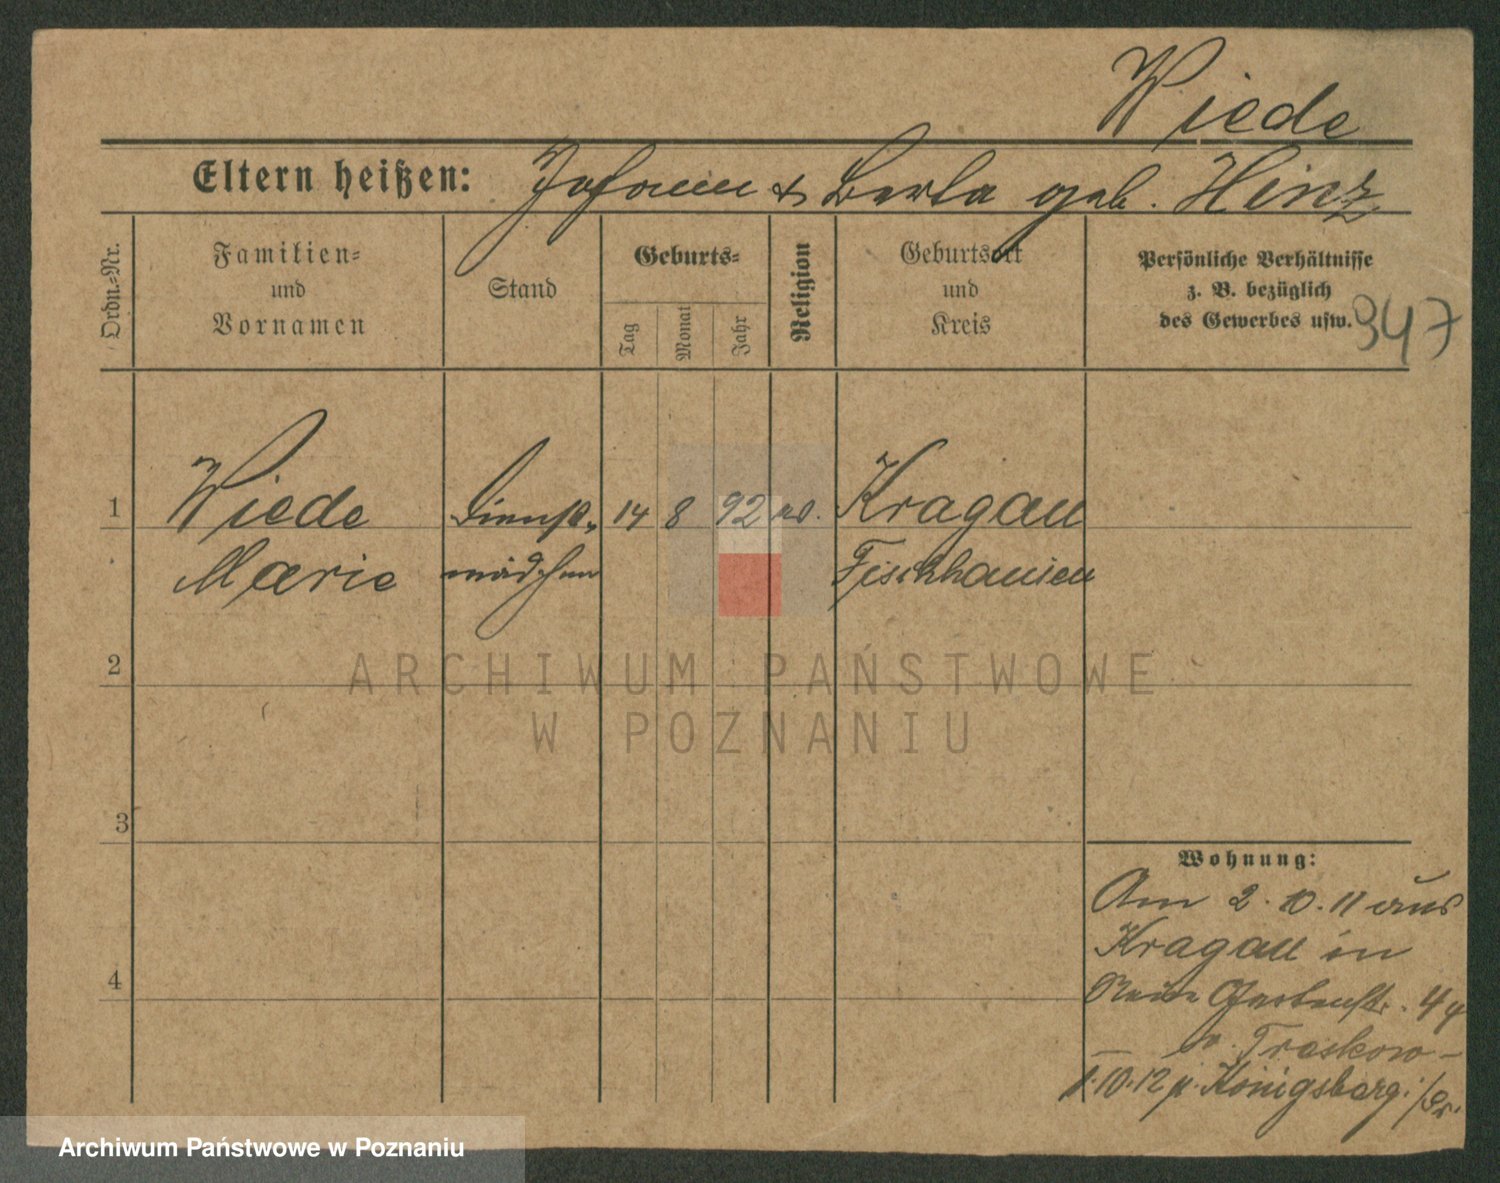 Wiede
Eltern heißen: Johann & Berta geb. Hinz
Ordn.-Nr.
Familien-
und
Vornamen
Stand
Geburts-
Tag
Monat
Jahr
Religion
Geburtsort
und
Kreis
Persönliche Verhältnisse
z. B. bezüglich
des Gewerbes usw.
947
1 Wiede Dienst- 14 8 92 ev. Kragau
Marie mädchen Fischhausen
2
3
4
Wohnung:
Am 2.10.11 aus
Kragau in
Neue Gartenstr. 4
v. Treskow
1.10.12 n. Königsberg i/Pr.
ARCHIWUM PAŃSTWOWE
W POZNANIU
Archiwum Państwowe w Poznaniu